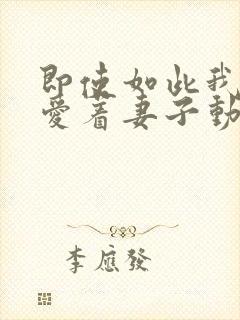 即使如此我
愛着妻子動
李應發